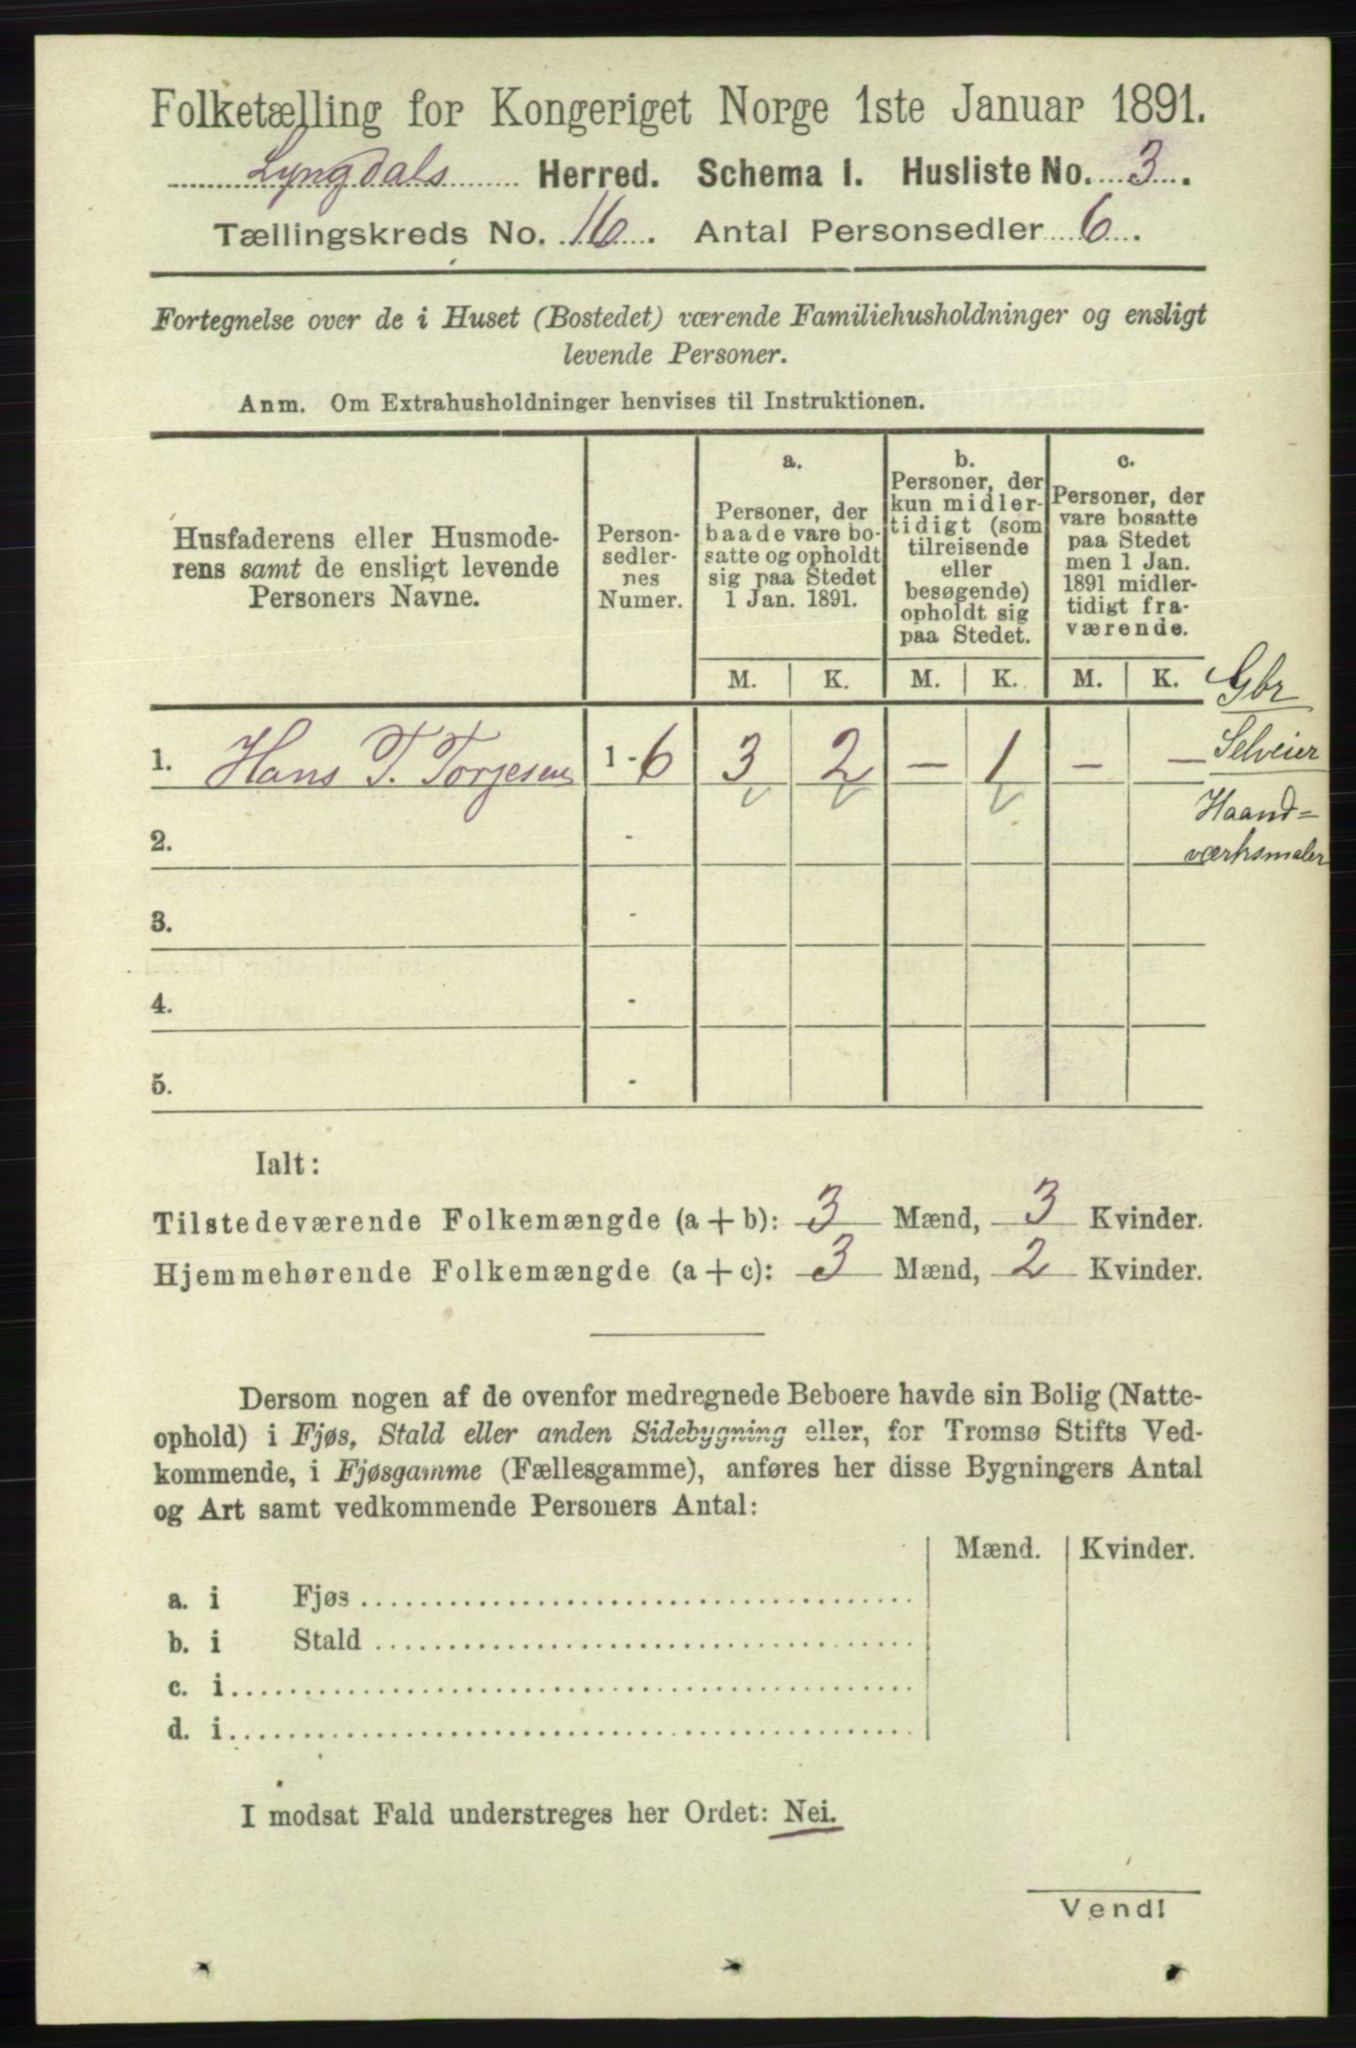 Folketælling for Kongeriget Norge 1ste Januar 1891.
Lyngdals Herred. Schema I. Husliste No. 3.
Tællingskreds No. 16. Antal Personsedler 6.
Fortegnelse over de i Huset (Bostedet) værende Familiehusholdninger og ensligt
levende Personer.
Anm. Om Extrahusholdninger henvises til Instruktionen.
Husfaderens eller Husmode-
rens samt de ensligt levende
Personers Navne.
Person-
sedler-
nes
Numer.
a.
Personer, der
baade vare bo-
satte og opholdt
sig paa Stedet
1 Jan. 1891.
b.
Personer, der
kun midler-
tidigt (som
tilreisende
eller
besøgende)
opholdt sig
paa Stedet.
c.
Personer, der
vare bosatte
paa Stedet
men 1 Jan.
1891 midler-
tidigt fra-
værende.
M. K. M. K. M. K.
Gbr
Selveier
Haand=
værksmaler
1. Hans T. Torjesen 1 - 6 3 2 — 1 — —
2. -
3. -
4. -
5. -
Ialt:
Tilstedeværende Folkemængde (a + b): 3 Mænd, 3 Kvinder.
Hjemmehørende Folkemængde (a + c): 3 Mænd, 2 Kvinder.
Dersom nogen af de ovenfor medregnede Beboere havde sin Bolig (Natte-
ophold) i Fjøs, Stald eller anden Sidebygning eller, for Tromsø Stifts Ved-
kommende, i Fjøsgamme (Fællesgamme), anføres her disse Bygningers Antal
og Art samt vedkommende Personers Antal:
Mænd. Kvinder.
a. i Fjøs
b. i Stald
c. i
d. i
I modsat Fald understreges her Ordet: Nei.
Vend!